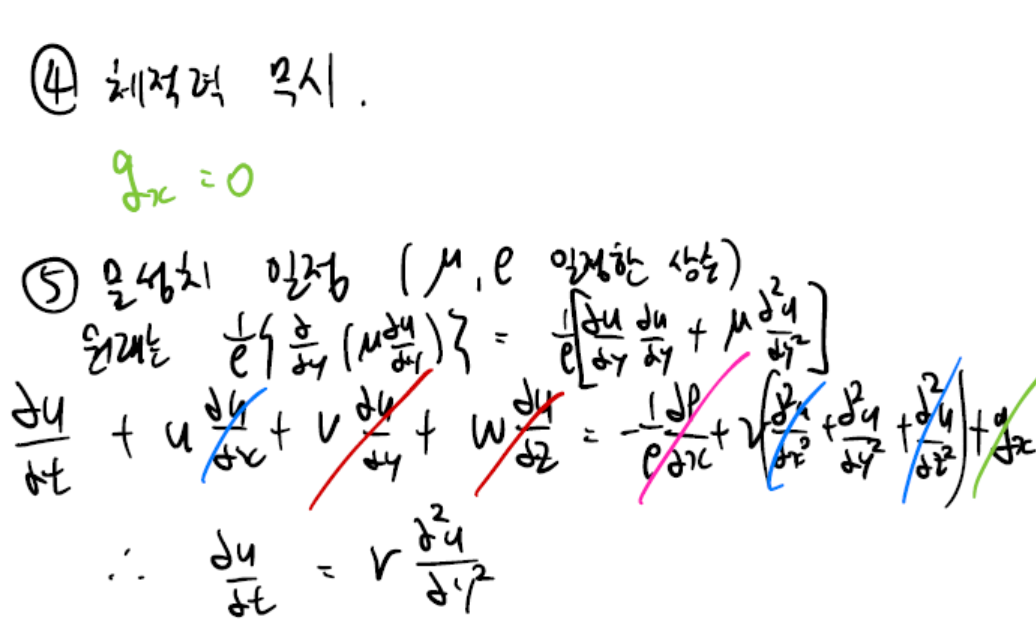 ④ 체적력 무시.
gₓ = 0
⑤ 물성치 일정 (μ, ρ 일정한 상수)
원래는 1/ρ{∂/∂y(μ ∂u/∂y)} = 1/ρ[∂μ/∂y ∂u/∂y + μ ∂²u/∂y²]
∂u/∂t + u ∂u/∂x + v ∂u/∂y + w ∂u/∂z = -1/ρ ∂P/∂x + ν(∂²u/∂x² + ∂²u/∂y² + ∂²u/∂z²) + gₓ
∴ ∂u/∂t = ν ∂²u/∂y²